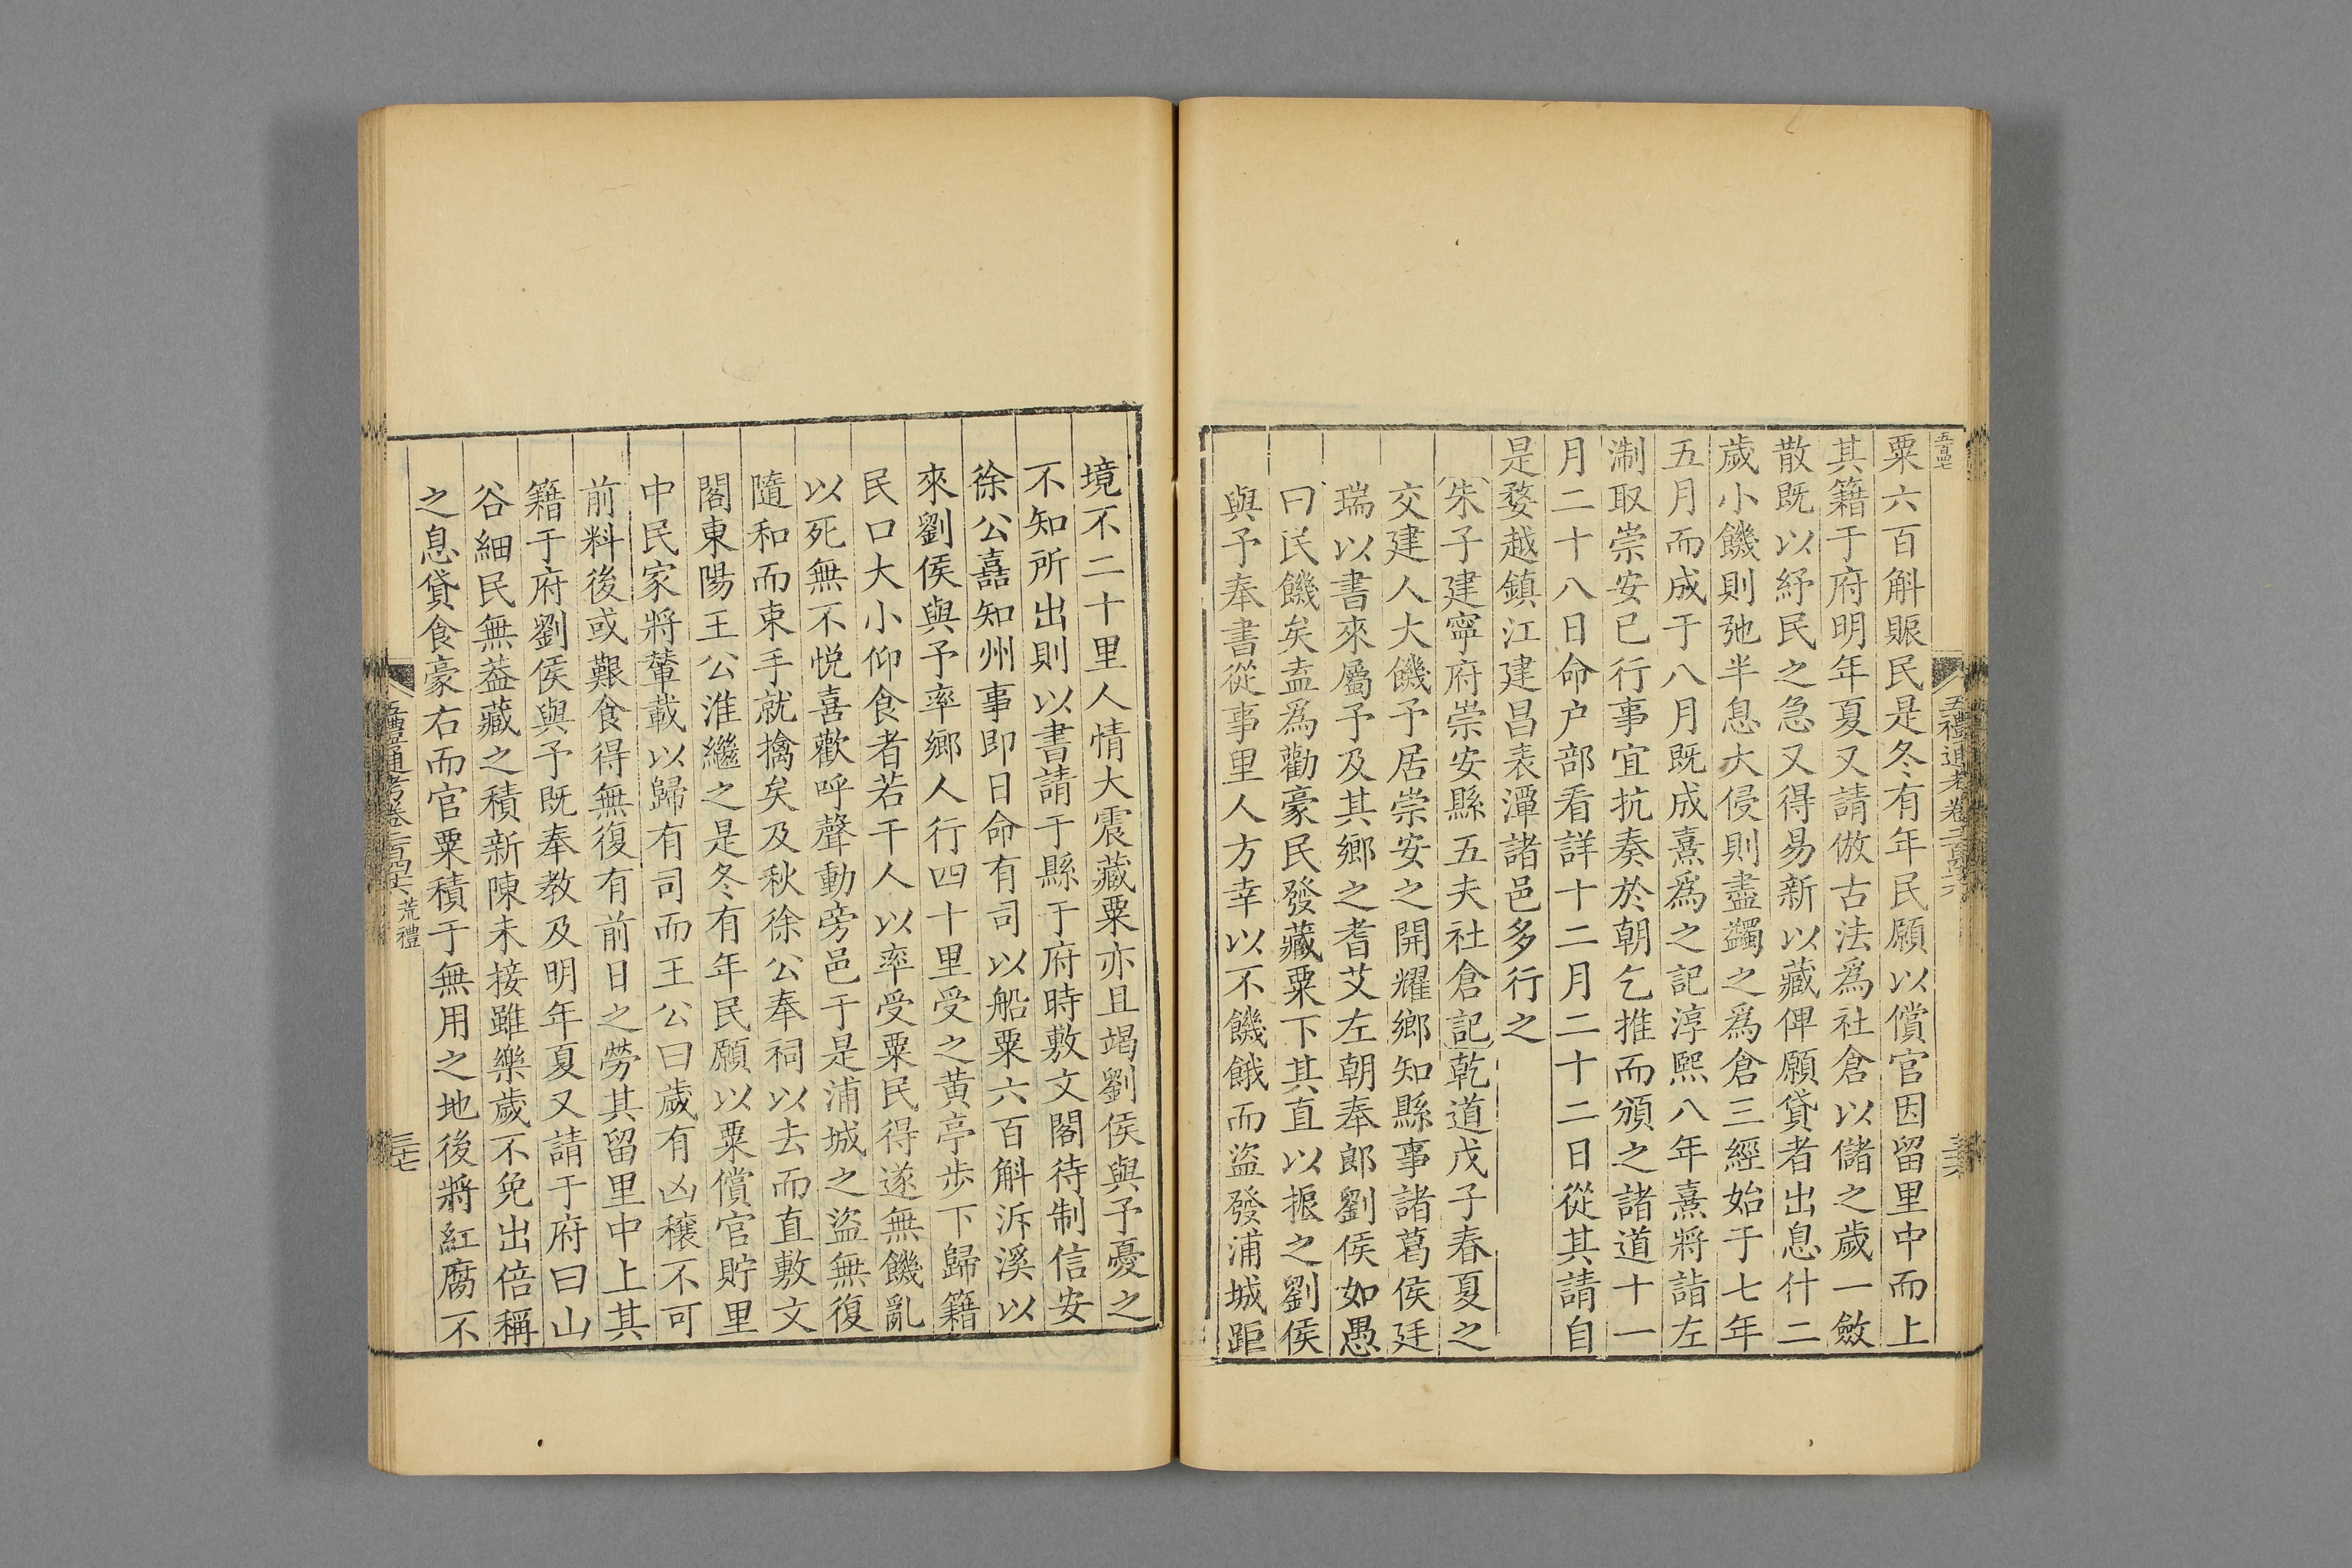 粟六百斛賑民是冬有年民願以償官因留里中而上
其籍于府明年夏又請倣古法爲社倉以儲之歲一斂
散既以紓民之急又得易新以藏俾願貸者出息什二
歲小饑則弛半息大侵則盡蠲之爲倉三經始于七年
五月而成于八月既成熹爲之記淳熙八年熹將詣左
淛取崇安已行事宜抗奏於朝乞推而頒之諸道十一
月二十八日命户部看詳十二月二十二日從其請自
是婺越鎮江建昌表潭諸邑多行之
朱子建寧府崇安縣五夫社倉記乾道戊子春夏之
交建人大饑予居崇安之開耀鄉知縣事諸葛侯廷
瑞以書來屬予及其鄉之耆艾左朝奉郎劉侯如愚
曰民饑矣盍爲勸豪民發藏粟下其直以振之劉侯
與予奉書從事里人方幸以不饑餓而盜發浦城距
境不二十里人情大震藏粟亦且竭劉侯與予憂之
不知所出則以書請于縣于府時敷文閣待制信安
徐公嚞知州事即日命有司以船粟六百斛泝溪以
來劉侯與予率鄉人行四十里受之黄亭步下歸籍
民口大小仰食者若干人以率受粟民得遂無饑亂
以死無不悦喜歡呼聲動旁邑于是浦城之盜無復
隨和而束手就擒矣及秋徐公奉祠以去而直敷文
閣東陽王公淮繼之是冬有年民願以粟償官貯里
中民家將輦載以歸有司而王公曰歲有凶穰不可
前料後或艱食得無復有前日之勞其留里中上其
籍于府劉侯與予既奉教及明年夏又請于府曰山
谷細民無蓋藏之積新陳未接雖樂歲不免出倍稱
之息貸食豪右而官粟積于無用之地後將紅腐不
五禮通考卷二百四十六 荒禮
三十七